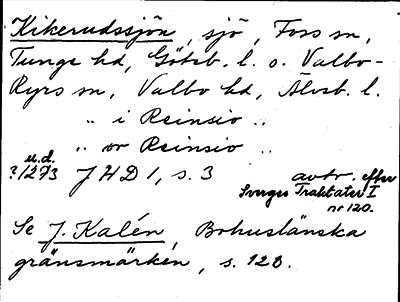 Kikerudssjön, sjö, Foss sn,
Tunge hd, Göteb. l. o. Valbo-
Ryrs sn, Valbo hd, Älvsb. l.
„ i Reinsio „
„ or Reinsio „
u.d.
?1273 JHD 1, s. 3 avtr. efter
Sverges Traktater I
nr 120.
Se J. Kalén, Bohuslänska
gränsmärken, s. 128.